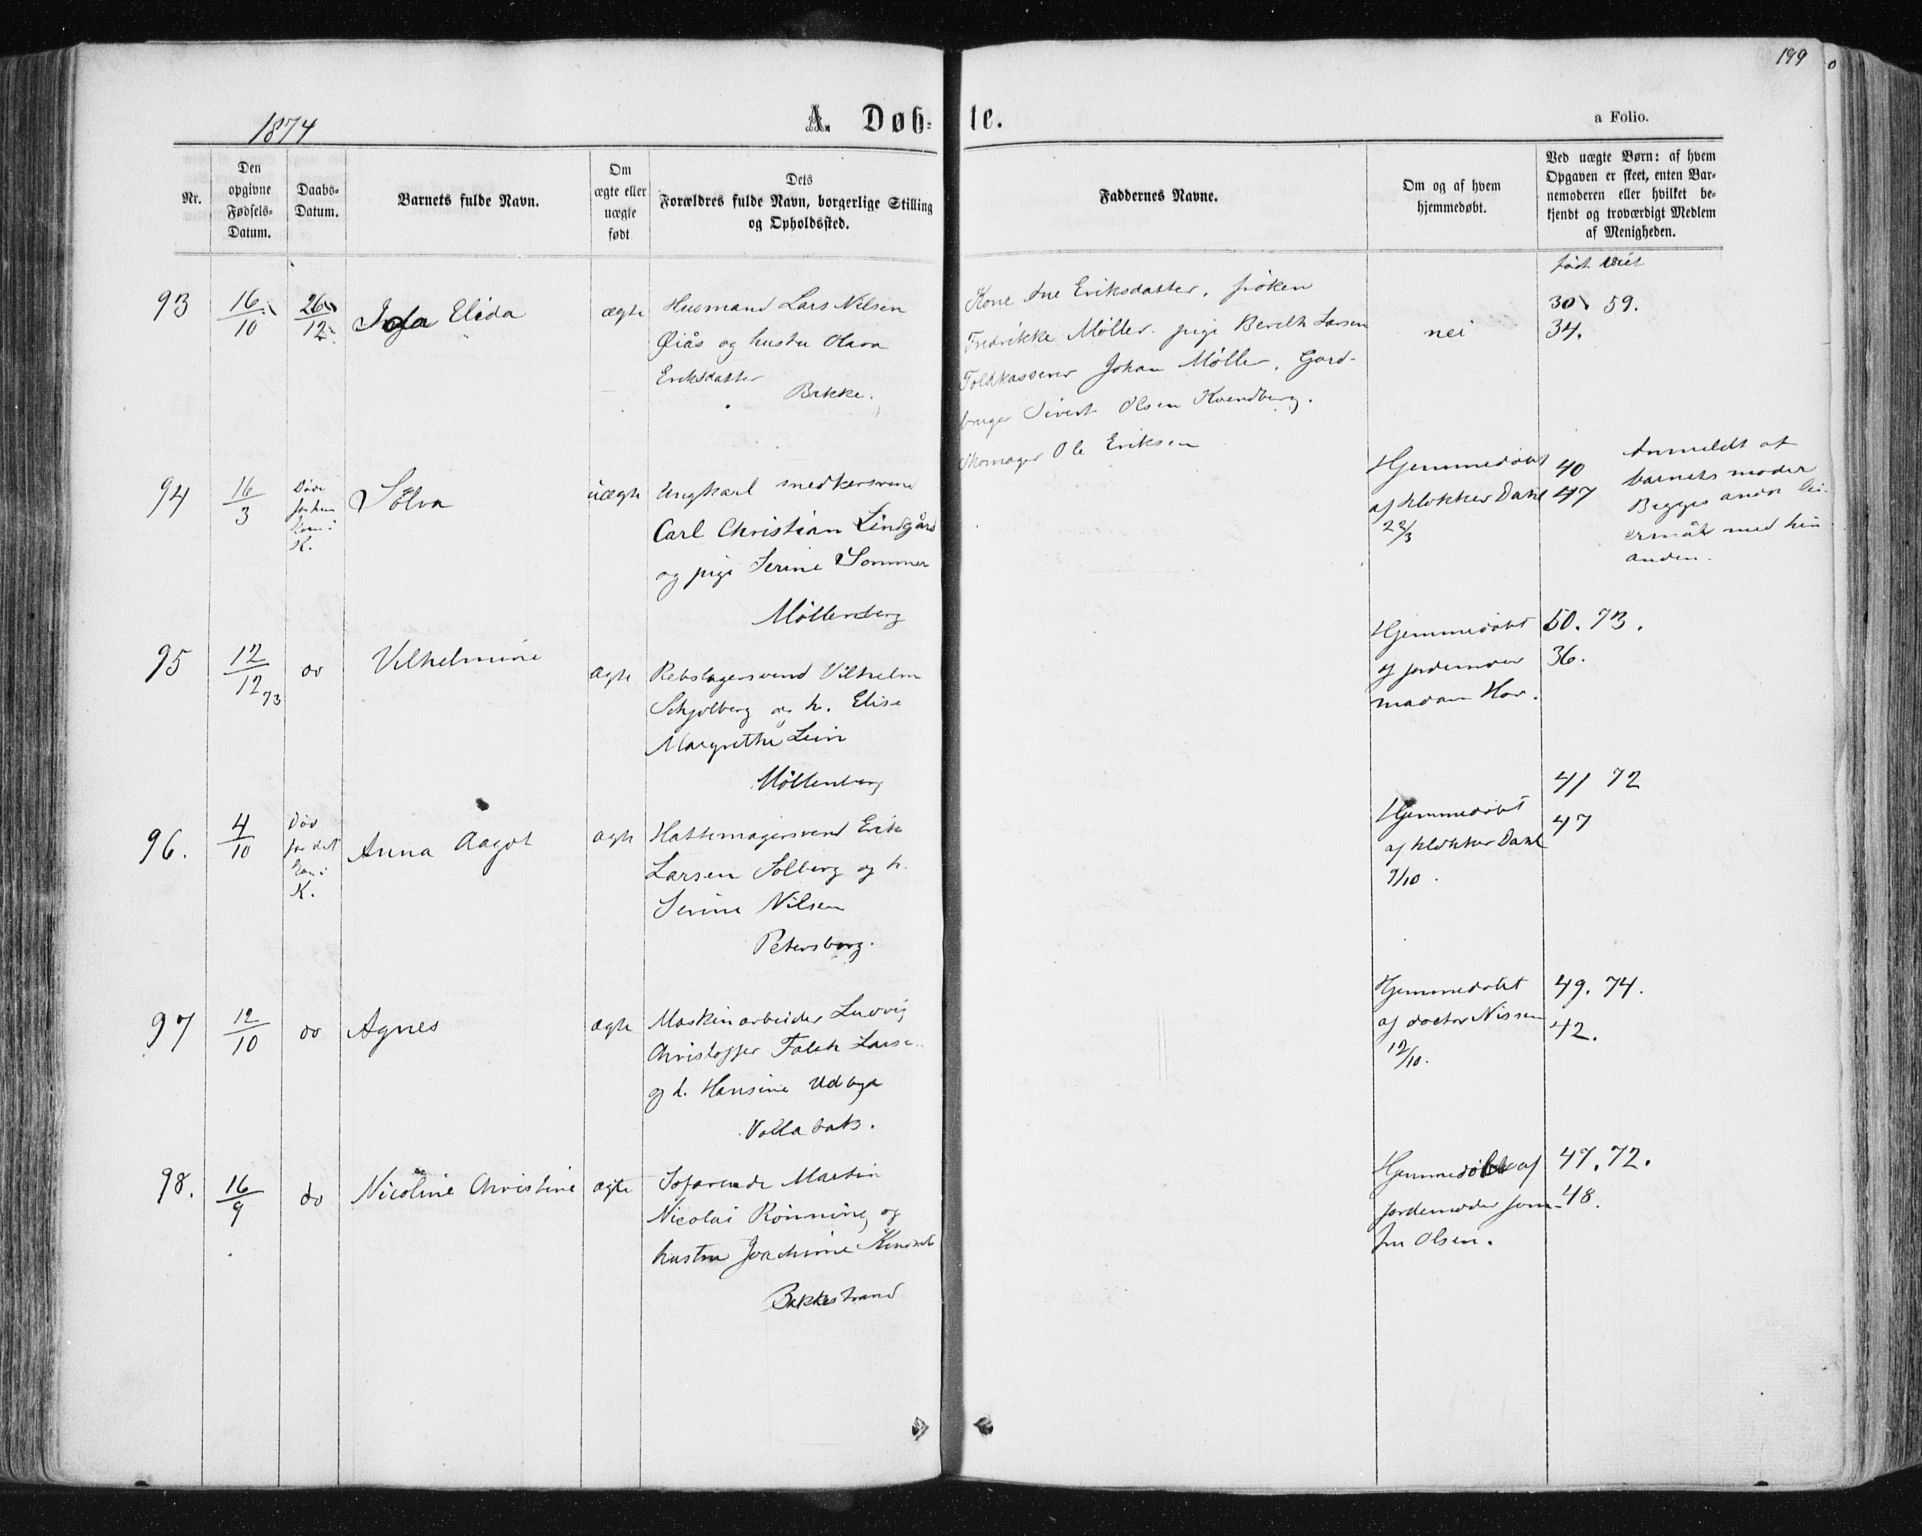 199
1874
A. Døb-
te.
a Folio.
Nr.
Den
opgivne
Fødsels-
Datum.
Daabs-
Datum.
Barnets fulde Navn.
Om
ægte eller
uægte
født
Dets
Forældres fulde Navn, borgerlige Stilling
og Opholdssted.
Faddernes Navne.
Om og af hvem
hjemmedøbt.
Ved uægte Børn: af hvem
Opgaven er skeet, enten Bar-
nemoderen eller hvilket be-
kjendt og troværdigt Medlem
af Menigheden.
født viet
93
16/10
26/12
Elida
ægte
Husmand Lars Nilsen
Øiås og hustru Olava
Eriksdatter
Bakke.
Kone Ane Eriksdatter, frøken
Fredrikke Møller. pige Bereth Larsen
Toldkasserer Johan Møller, Gard-
bruger Sivert Olsen Kvendberg.
Skomager Ole Eriksen
nei
30 59.
34.
94
16/3
Døde
før hun
kom i
K.
Sølva
uægte
Ungkarl snedkersvend
Carl Christian Lindgård
og pige Serine Sommer
Møllenberg
Hjemmedøbt
af klokker Dahl
22/3
40
47
Anmeldt af
barnets moder
Begges andet lei-
ermål med hin
anden.
95
12/12 73
do
Vilhelmine
ægte
Rebslagersvend Vilhelm
Schjølberg og h. Elise
Margrethe Lein
Møllenberg
Hjemmedøbt
af jordemoder
madam Hov.
50. 73.
36.
96.
4/10
Død
før det
kom i
K.
Anna Aagot
ægte
Hattemagersvend Erik
Larsen Solberg og h.
Serine Nilsen
Petersborg.
Hjemmedøbt
af klokker Dahl
9/10.
41 72
47
97
12/10
do
Agnes
ægte
Maskinarbeider Ludvig
Christoffer Falck Larse
og h. Hansine Udbye
Vollabak.
Hjemmedøbt
af doctor Nissen
12/10.
49. 74.
42.
98.
16/9
do
Nicoline Christine
ægte
Søfarende Martin
Nicolai Rønning og
hustru Joachime
Bakkestrand
Hjemmedøbt af
jordemoder jom-
fru Olsen.
47. 72.
48.